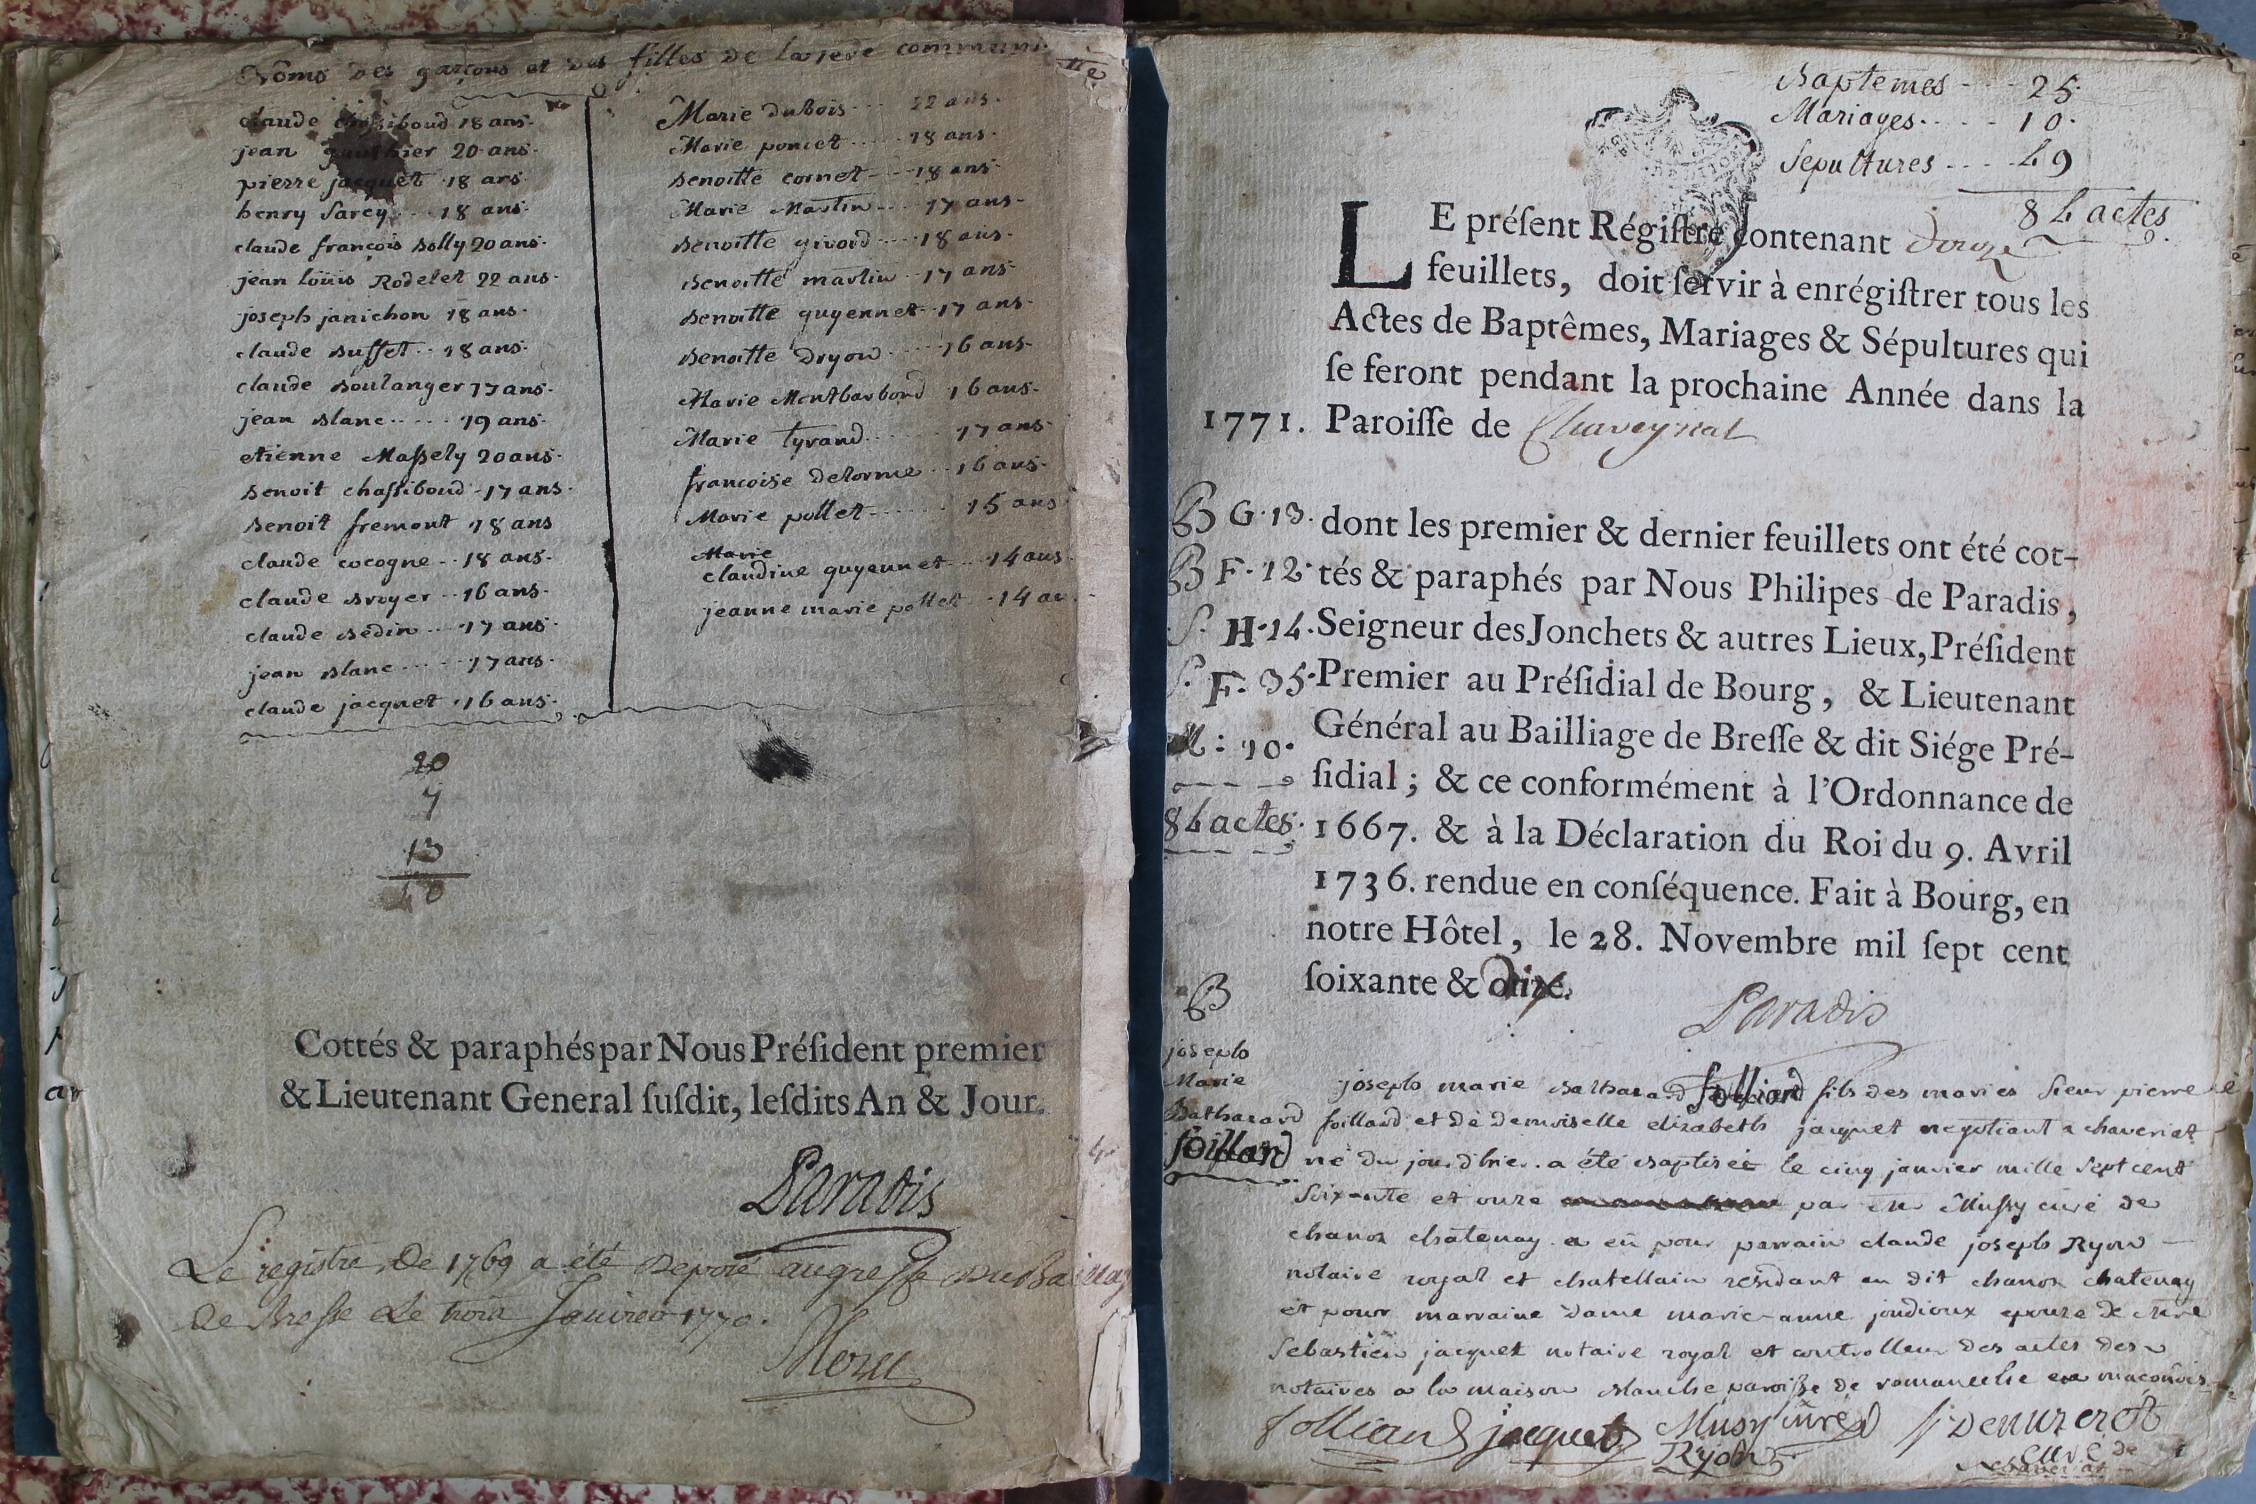 Noms des garçons et des filles de la 1ere communion
claude chassiboud 18 ans.
jean gauthier 20 ans.
pierre jacquet 18 ans
henry Sarey ... 18 ans.
claude françois Solly 20 ans.
jean Loüis Rodelet 22 ans.
joseph janichon 18 ans.
claude Buffet .. 18 ans.
claude Boulanger 17 ans.
jean Blanc ..... 19 ans.
etienne Massely 20 ans.
Benoit chassiboud 17 ans.
Benoit fremont 18 ans
claude cocogne .. 18 ans.
claude Broyer .. 16 ans.
claude Bedin ... 17 ans.
jean Blanc ..... 17 ans.
claude jacquet . 16 ans.
Marie duBois ... 22 ans.
Marie poncet ..... 18 ans.
Benoitte cornet ... 18 ans.
Marie Martin .... 17 ans.
Benoitte givord .... 18 ans.
Benoitte martin .. 17 ans.
Benoitte guyennet .. 17 ans.
Benoitte Dryon ..... 16 ans.
Marie Montbarbond 16 ans.
Marie tyrand ....... 17 ans.
francoise Delorme .. 16 ans.
Marie pollet ....... 15 ans
Marie
claudine guyennet ... 14 ans.
jeanne marie pollet . 14 an
20
7
13
40
Cottés & paraphés par Nous Préſident premier
& Lieutenant General ſuſdit, leſdits An & Jour.
Paradis
Le registre de 1769 a été Deposé au greffe du Bailliage
de Bresse Le trois Janvier 1770.
Baptemes ... 25.
Mariages ..... 10.
Sepultures .... 49
84 actes.
LE préſent Régiſtre contenant douze
feuillets, doit ſervir à enrégiſtrer tous les
Actes de Baptêmes, Mariages & Sépultures qui
ſe feront pendant la prochaine Année dans la
1771. Paroiſſe de Chaveyriat
B G. 13. dont les premier & dernier feuillets ont été cot-
B F. 12. tés & paraphés par Nous Philipes de Paradis,
S. H. 14. Seigneur des Jonchets & autres Lieux, Préſident
S. F. 35. Premier au Préſidial de Bourg, & Lieutenant
Général au Bailliage de Breſſe & dit Siége Pré-
M : 10. ſidial ; & ce conformément à l'Ordonnance de
84 actes. 1667. & à la Déclaration du Roi du 9. Avril
1736. rendue en conſéquence. Fait à Bourg, en
notre Hôtel, le 28. Novembre mil ſept cent
ſoixante & dix.
Paradis
B
joseph
Marie
Balthazard
foilland
joseph marie Balthazard folliard fils des mariés sieur pierre
foilland et de demoiselle elizabeth jacquet negotiant a chaveriat
né du jour d'hier a été baptisé le cinq janvier mille sept cent
soixante et onze par Mre Mussy curé de
chanoz chatenay a eü pour parrain claude joseph Ryon
notaire royal et chatellain residant au dit chanoz chatenay
et pour marraine dame marie-anne joudioux epouze de Mre
Sebastien jacquet notaire royal et controlleur des actes des
notaires a la maison blanche paroisse de romaneche en maconois
folliard jacquet Musy curé
Ryon
curé de
chaveriat